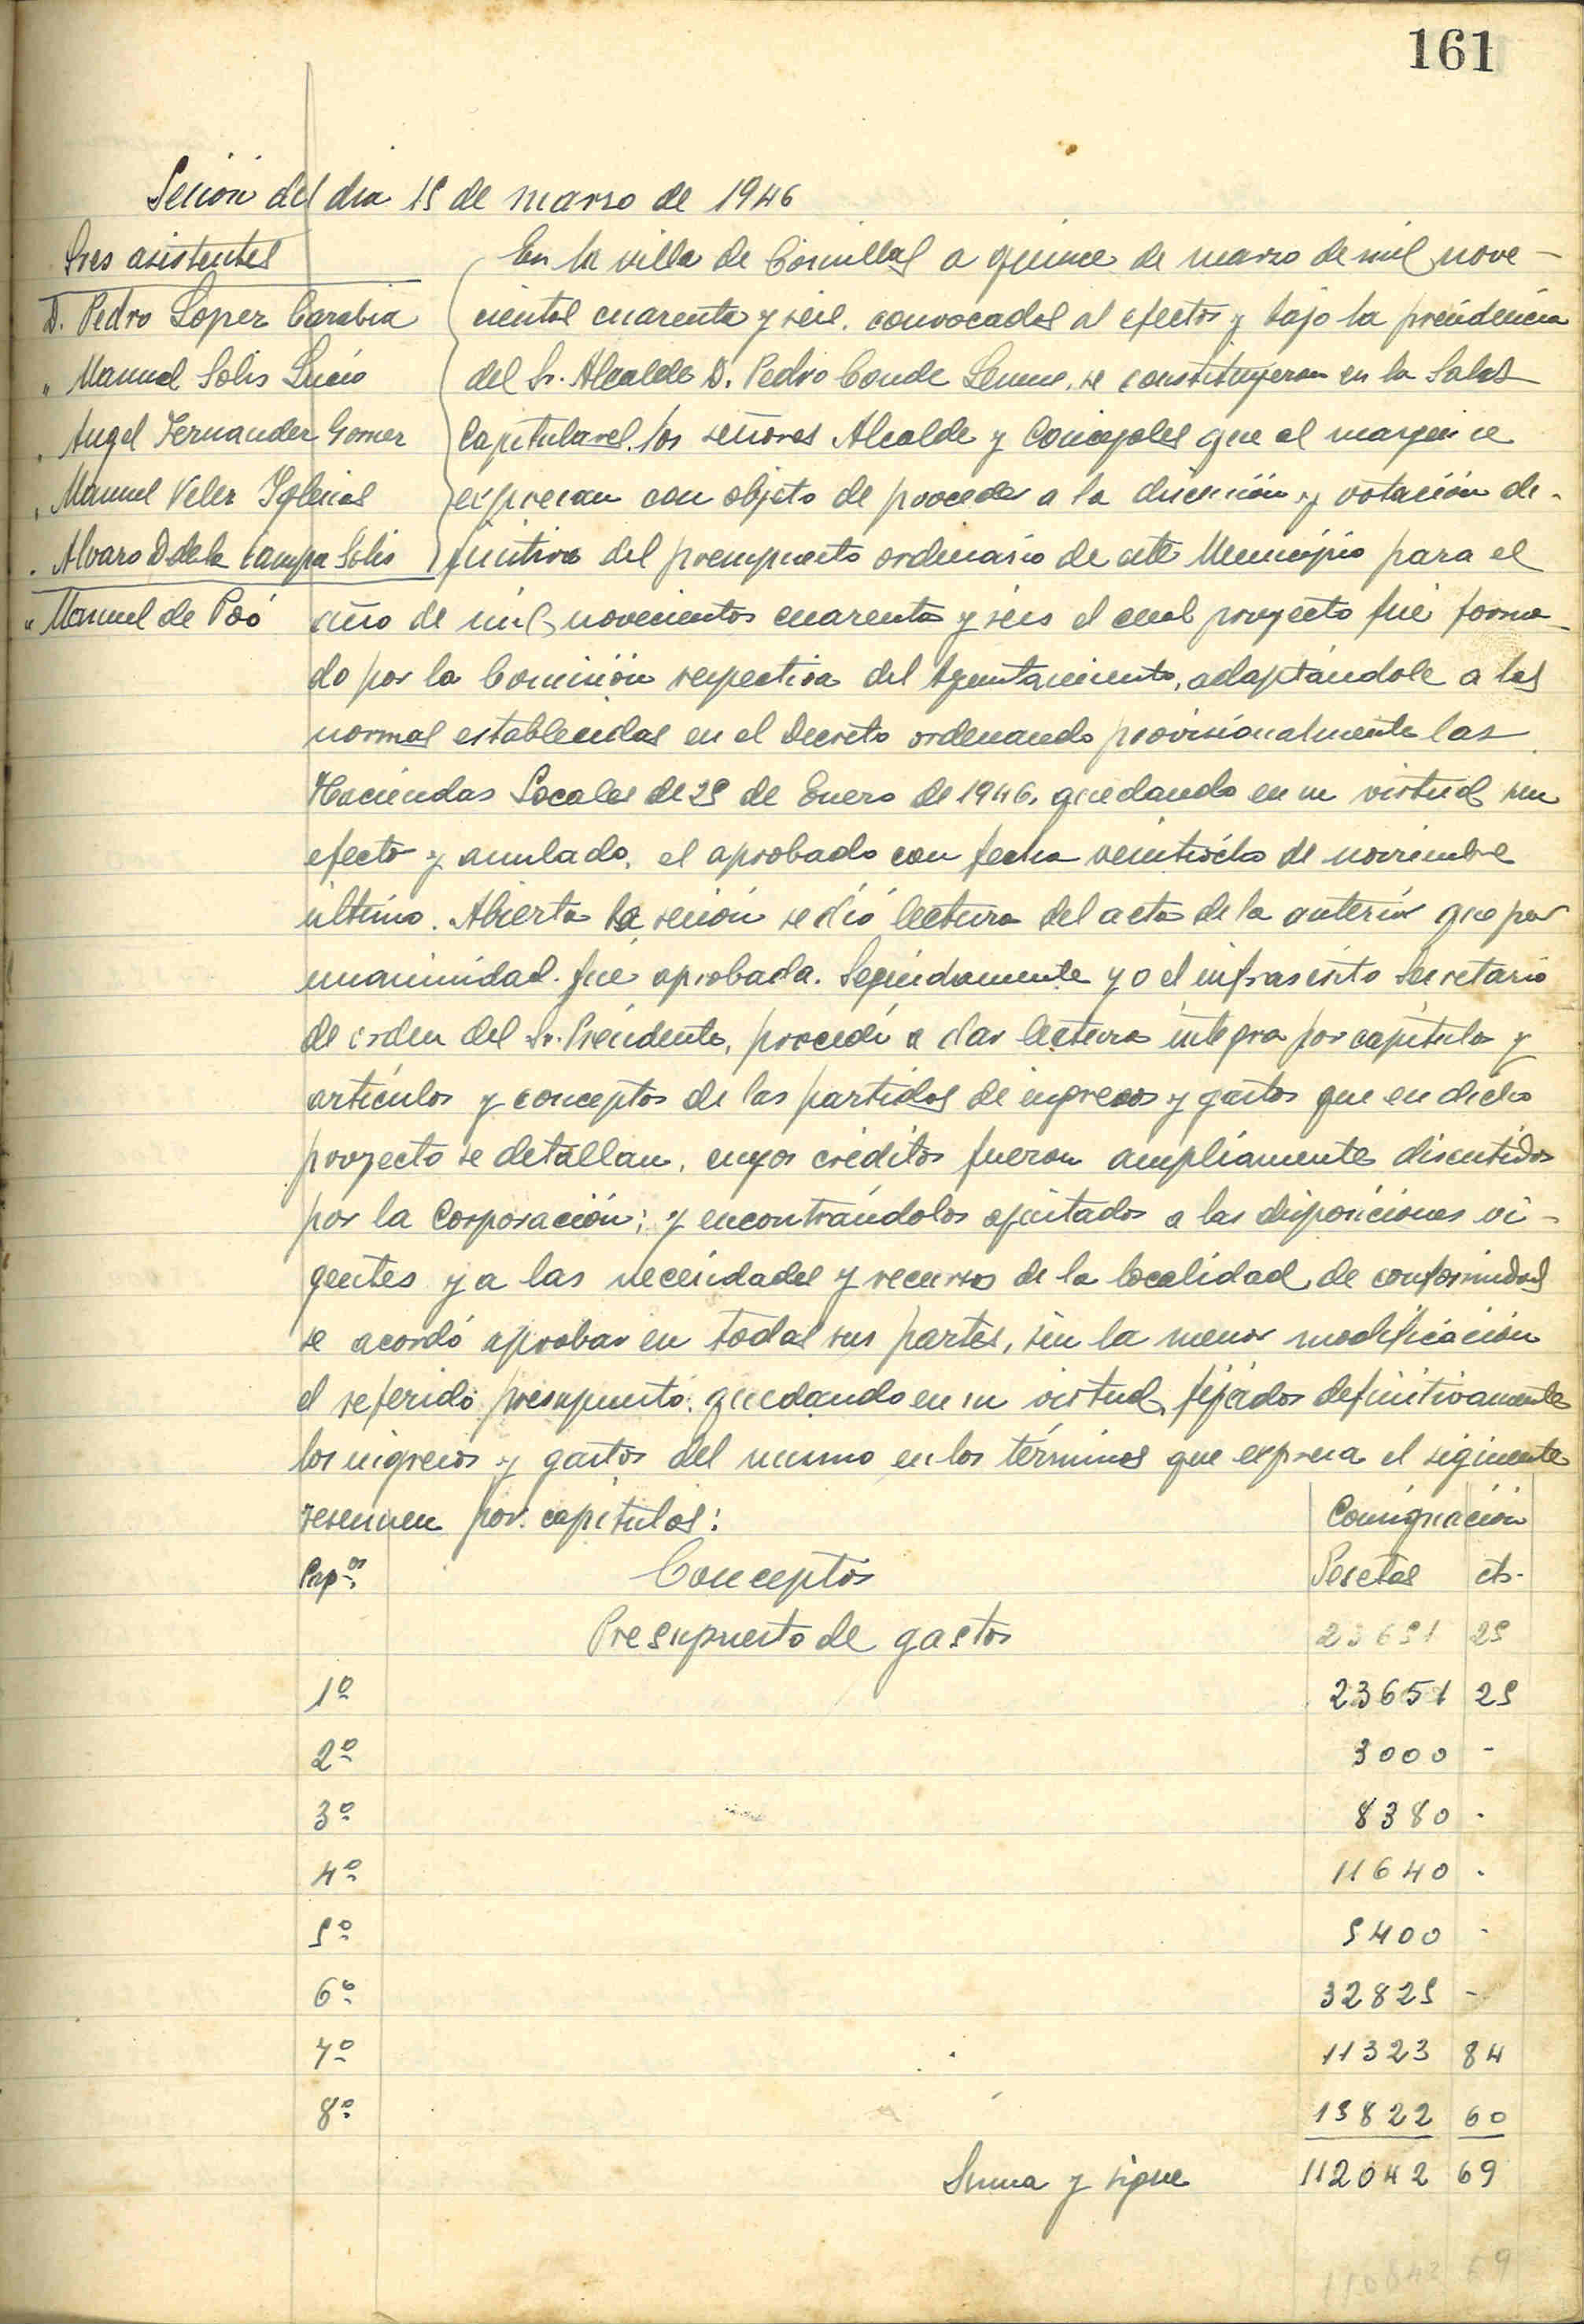 161
Sesión del dia 15 de marzo de 1946
Sres asistentes
D. Pedro Lopez Carabia
" Manuel Solis Lucio
" Angel Fernandez Gomez
" Manuel Velez Iglesias
" Alvaro D de la Campa Solis
" Manuel de Poó
En la villa de Comillas a quince de marzo de mil nove-
cientos cuarenta y seis, convocados al efecto y bajo la presidencia
del Sr. Alcalde D. Pedro Conde, se constituyeron en la Salas
Capitulares, los señores Alcalde y Concejales que al margen se
expresan con objeto de proceder a la discusión y votación de-
finitiva del presupuesto ordinario de este Municipio para el
año de mil novecientos cuarenta y seis el cual proyecto fué forma-
do por la Comisión respectiva del Ayuntamiento, adaptándole a las
normas establecidas en el Decreto ordenando provisionalmente las
Haciendas Locales de 25 de Enero de 1946, quedando en su virtud sin
efecto y anulado, el aprobado con fecha veintiocho de noviembre
último. Abierta la sesión se dió lectura del acta de la anterior que por
unanimidad fué aprobada. Seguidamente yo el infrascrito Secretario
de orden del Sr. Presidente, procedí a dar lectura integra por capítulos y
artículos y conceptos de las partidas de ingresos y gastos que en dicho
proyecto se detallan, cuyos créditos fueron ampliamente discutidos
por la Corporación; y encontrándolos ajustados a las disposiciones vi-
gentes y a las necesidades y recursos de la localidad, de conformidad
se acordó aprobar en todas sus partes, sin la menor modificación
el referido presupuesto, quedando en su virtud, fijados definitivamente
los ingresos y gastos del mismo en los términos que expresa el siguiente
resumen por capítulos:
Consignación
Cap.os Conceptos Pesetas cts.
Presupuesto de gastos 23651 25
1º 23651 25
2º 3000 -
3º 8380 -
4º 11640 -
5º 5400 -
6º 32825 -
7º 11323 84
8º 15822 60
Suma y sigue 112042 69
110042 69